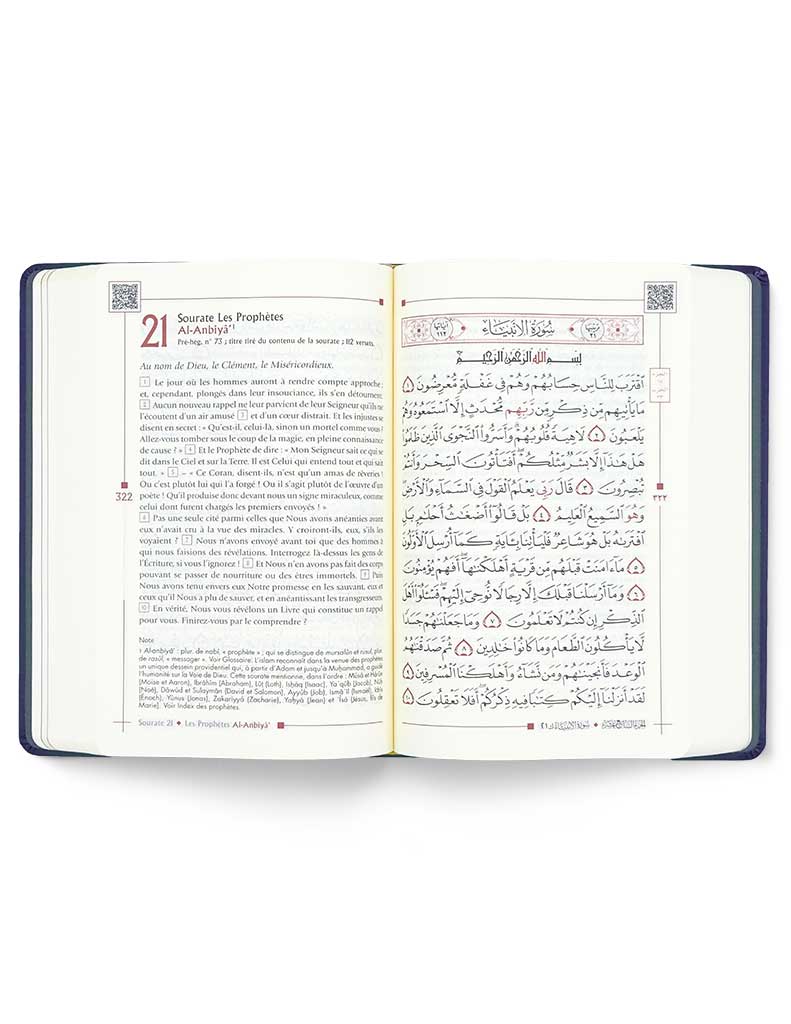 21
Sourate Les Prophètes
Al-Anbiyâ’¹
Pré-hég. n° 73 ; titre tiré du contenu de la sourate ; 112 versets.
Au nom de Dieu, le Clément, le Miséricordieux.
1 Le jour où les hommes auront à rendre compte approche ;
et, cependant, plongés dans leur insouciance, ils s’en détournent.
2 Aucun nouveau rappel ne leur parvient de leur Seigneur qu’ils ne
l’écoutent d’un air amusé 3 et d’un cœur distrait. Et les injustes se
disent en secret : « Qu’est-il, celui-là, sinon un mortel comme vous ?
Allez-vous tomber sous le coup de la magie, en pleine connaissance
de cause ? » 4 Et le Prophète de dire : « Mon Seigneur sait ce qui se
dit dans le Ciel et sur la Terre. Il est Celui qui entend tout et qui sait
tout. » 5 – « Ce Coran, disent-ils, n’est qu’un amas de rêveries !
Ou c’est plutôt lui qui l’a forgé ! Ou il s’agit plutôt de l’œuvre d’un
poète ! Qu’il produise donc devant nous un signe miraculeux, comme
celui dont furent chargés les premiers envoyés ! »
6 Pas une seule cité parmi celles que Nous avons anéanties avant
eux n’avait cru à la vue des miracles. Y croiront-ils, eux, s’ils les
voyaient ? 7 Nous n’avons envoyé avant toi que des hommes à
qui nous faisions des révélations. Interrogez là-dessus les gens de
l’Écriture, si vous l’ignorez ! 8 Et Nous n’en avons pas fait des corps
pouvant se passer de nourriture ou des êtres immortels. 9 Puis
Nous avons tenu envers eux Notre promesse en les sauvant, eux et
ceux qu’il Nous a plu de sauver, et en anéantissant les transgresseurs.
10 En vérité, Nous vous révélons un Livre qui constitue un rappel
pour vous. Finirez-vous par le comprendre ?
322
Note
1 Al-anbiyâ’ : plur. de nabî, « prophète » ; qui se distingue de mursalûn et rusul, plur.
de rasûl, « messager ». Voir Glossaire. L’islam reconnaît dans la venue des prophètes
un unique dessein providentiel qui, à partir d’Adam et jusqu’à Muhammad, a guidé
l’humanité sur la Voie de Dieu. Cette sourate mentionne, dans l’ordre : Mûsâ et Hârûn
(Moïse et Aaron), Ibrâhîm (Abraham), Lût (Loth), Ishâq (Isaac), Ya‘qûb (Jacob), Nûh
(Noé), Dâwûd et Sulaymân (David et Salomon), Ayyûb (Job), Ismâ‘îl (Ismaël), Idrîs
(Enoch), Yûnus (Jonas), Zakariyyâ (Zacharie), Yahyâ (Jean) et ‘Îsâ (Jésus, fils de
Marie). Voir Index des prophètes.
Sourate 21 ◆ Les Prophètes Al-Anbiyâ’
سُورَةُ الأَنبِيَاءِ
بِسْمِ اللَّهِ الرَّحْمَٰنِ الرَّحِيمِ
ٱقْتَرَبَ لِلنَّاسِ حِسَابُهُمْ وَهُمْ فِى غَفْلَةٍ مُّعْرِضُونَ ١
مَا يَأْتِيهِم مِّن ذِكْرٍ مِّن رَّبِّهِم مُّحْدَثٍ إِلَّا ٱسْتَمَعُوهُ وَهُمْ
يَلْعَبُونَ ٢ لَاهِيَةً قُلُوبُهُمْ وَأَسَرُّوا۟ ٱلنَّجْوَى ٱلَّذِينَ ظَلَمُوا۟
هَلْ هَٰذَآ إِلَّا بَشَرٌ مِّثْلُكُمْ أَفَتَأْتُونَ ٱلسِّحْرَ وَأَنتُمْ
تُبْصِرُونَ ٣ قَالَ رَبِّى يَعْلَمُ ٱلْقَوْلَ فِى ٱلسَّمَآءِ وَٱلْأَرْضِ
وَهُوَ ٱلسَّمِيعُ ٱلْعَلِيمُ ٤ بَلْ قَالُوٓا۟ أَضْغَٰثُ أَحْلَٰمٍ بَلِ
ٱفْتَرَىٰهُ بَلْ هُوَ شَاعِرٌ فَلْيَأْتِنَا بِـَٔايَةٍ كَمَآ أُرْسِلَ ٱلْأَوَّلُونَ
٥ مَآ ءَامَنَتْ قَبْلَهُم مِّن قَرْيَةٍ أَهْلَكْنَٰهَآ أَفَهُمْ يُؤْمِنُونَ
٦ وَمَآ أَرْسَلْنَا قَبْلَكَ إِلَّا رِجَالًا نُّوحِىٓ إِلَيْهِمْ فَسْـَٔلُوٓا۟ أَهْلَ
ٱلذِّكْرِ إِن كُنتُمْ لَا تَعْلَمُونَ ٧ وَمَا جَعَلْنَٰهُمْ جَسَدًا
لَّا يَأْكُلُونَ ٱلطَّعَامَ وَمَا كَانُوا۟ خَٰلِدِينَ ٨ ثُمَّ صَدَقْنَٰهُمُ
ٱلْوَعْدَ فَأَنجَيْنَٰهُمْ وَمَن نَّشَآءُ وَأَهْلَكْنَا ٱلْمُسْرِفِينَ ٩
لَقَدْ أَنزَلْنَآ إِلَيْكُمْ كِتَٰبًا فِيهِ ذِكْرُكُمْ أَفَلَا تَعْقِلُونَ ١٠
٣٢٢